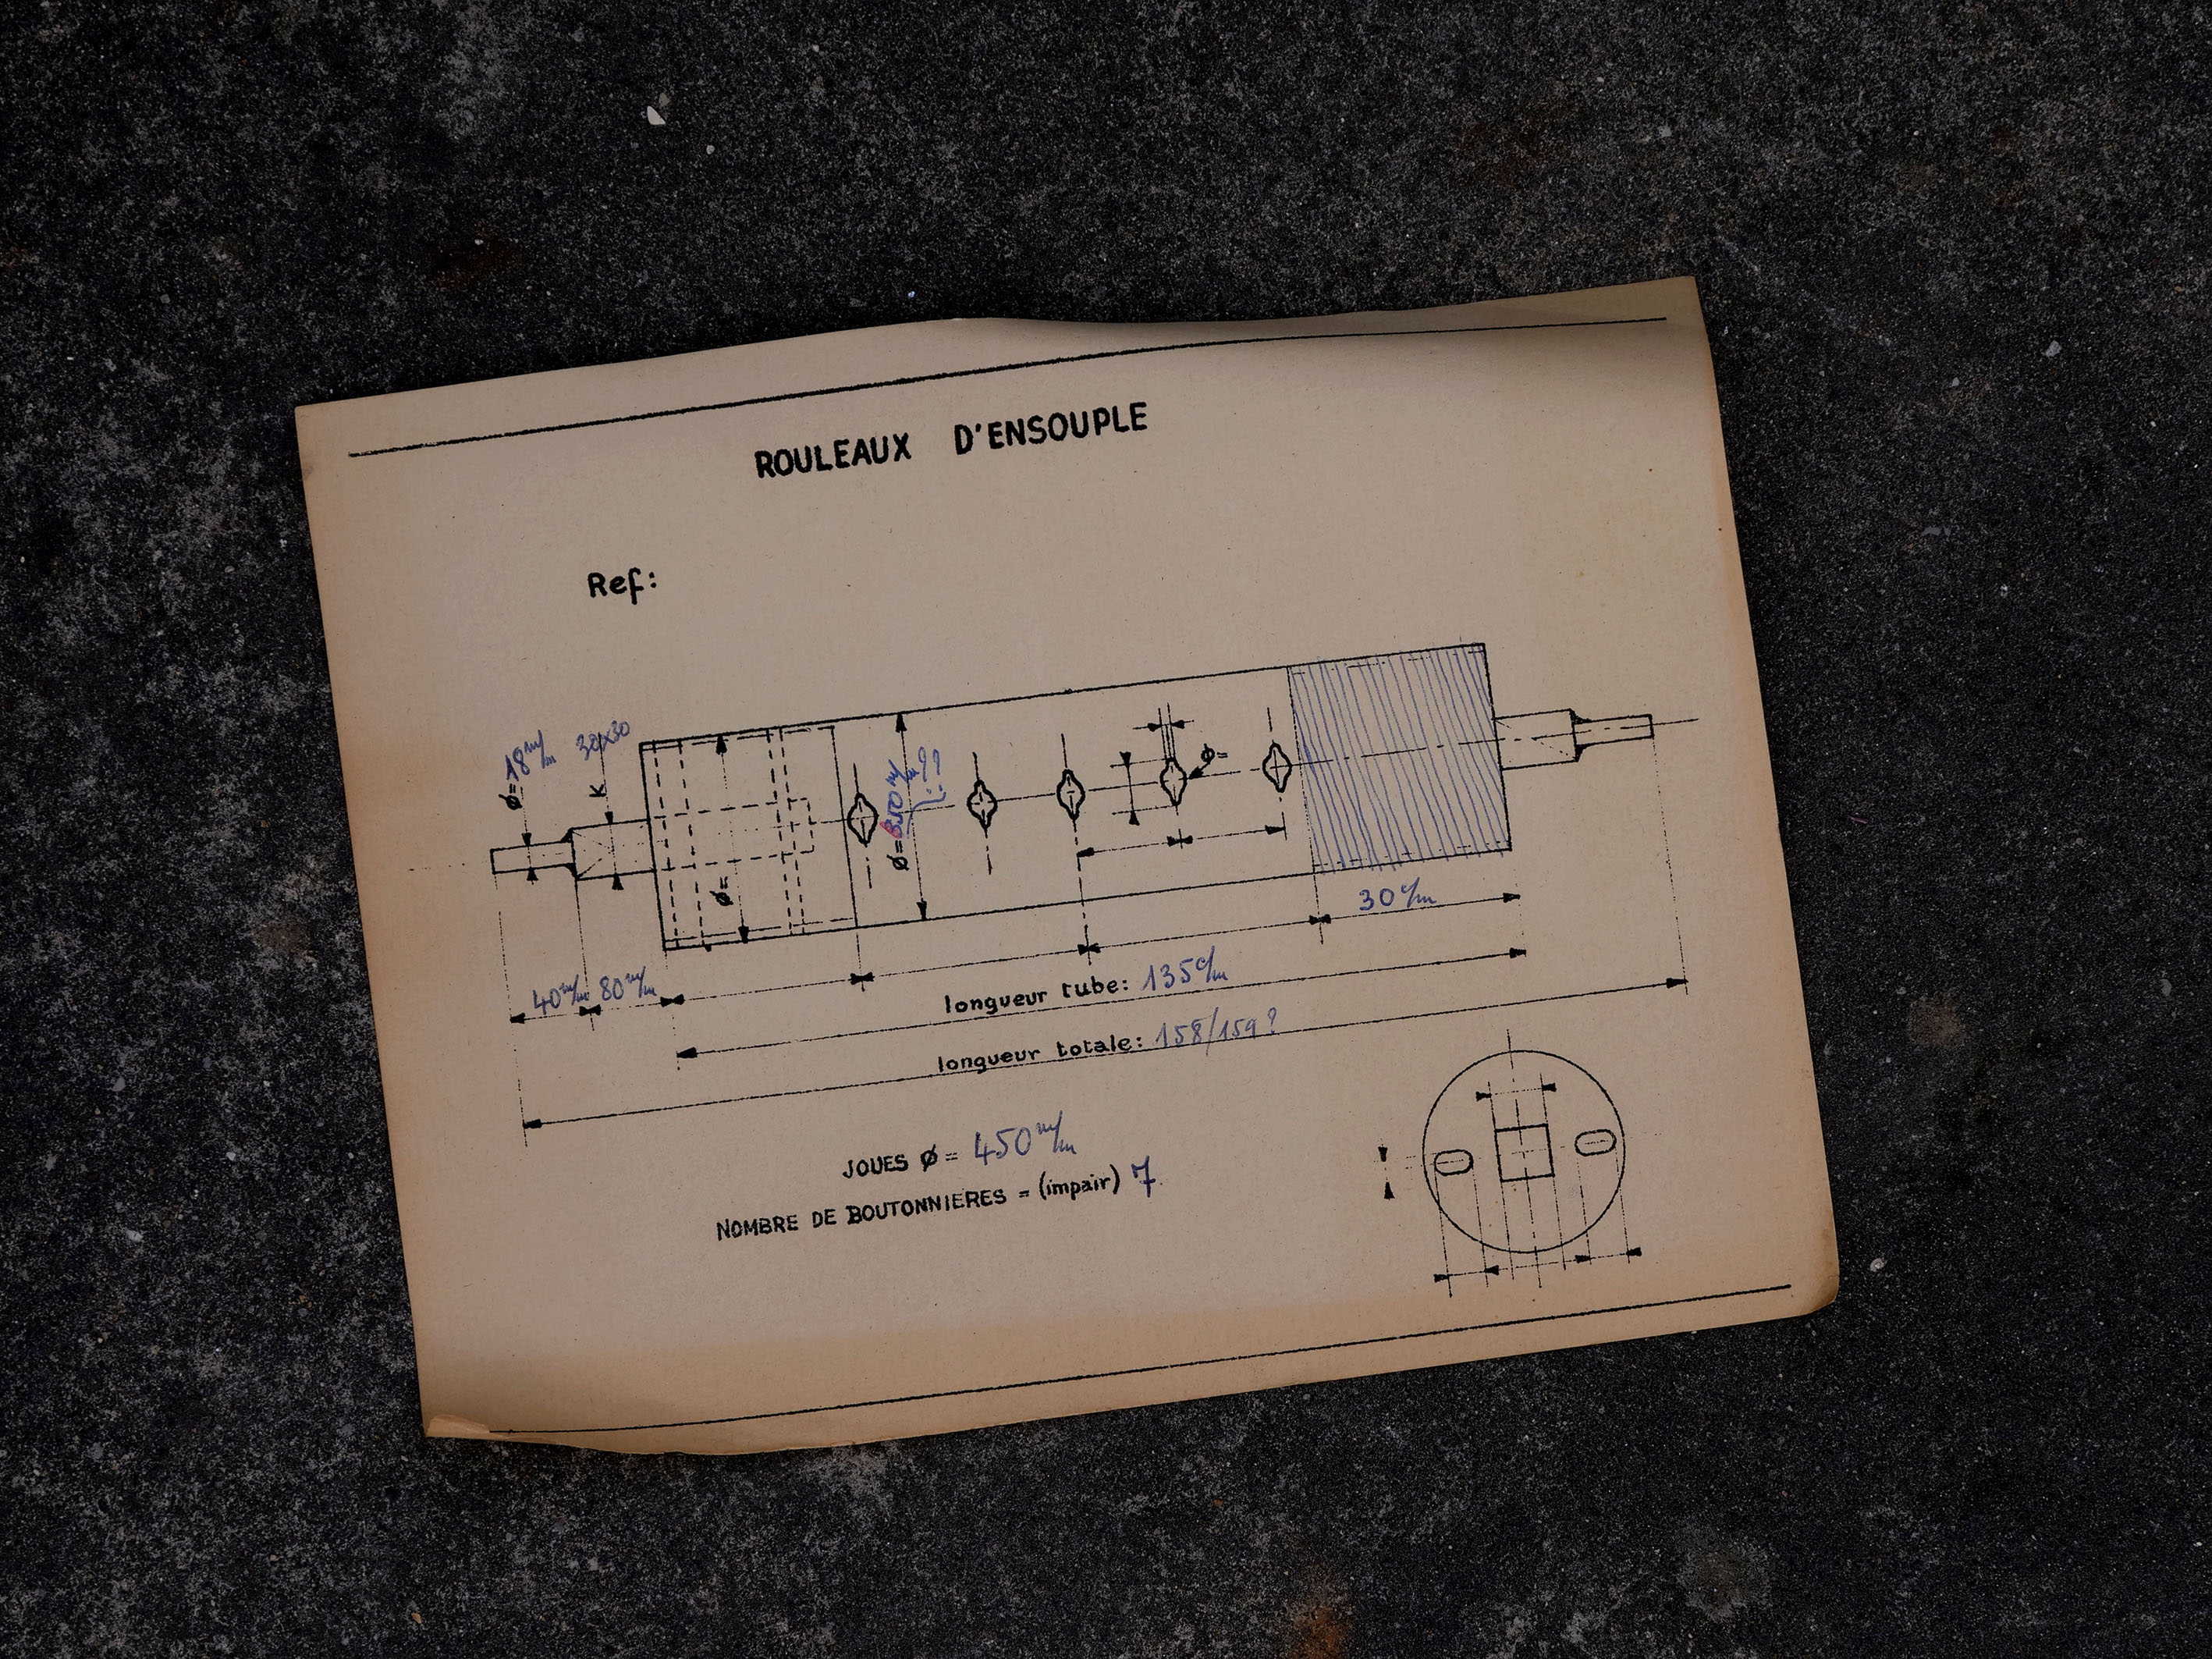 ROULEAUX D'ENSOUPLE
Ref:
ø=18 m/m
30x30
K
ø=
ø= 350 m/m ??
ø=
30 c/m
40 m/m 80 m/m
longueur tube: 135 c/m
longueur totale: 158/159?
JOUES ø = 450 m/m
NOMBRE DE BOUTONNIERES = (impair) 7